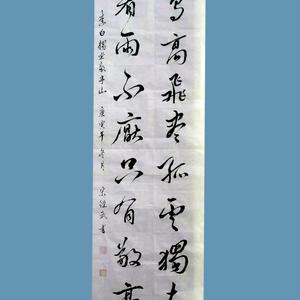 鳥高飛尽孤雲獨去
看兩不厭只有敬亭
李白獨坐敬亭山 庚寅年冬月 宋武書